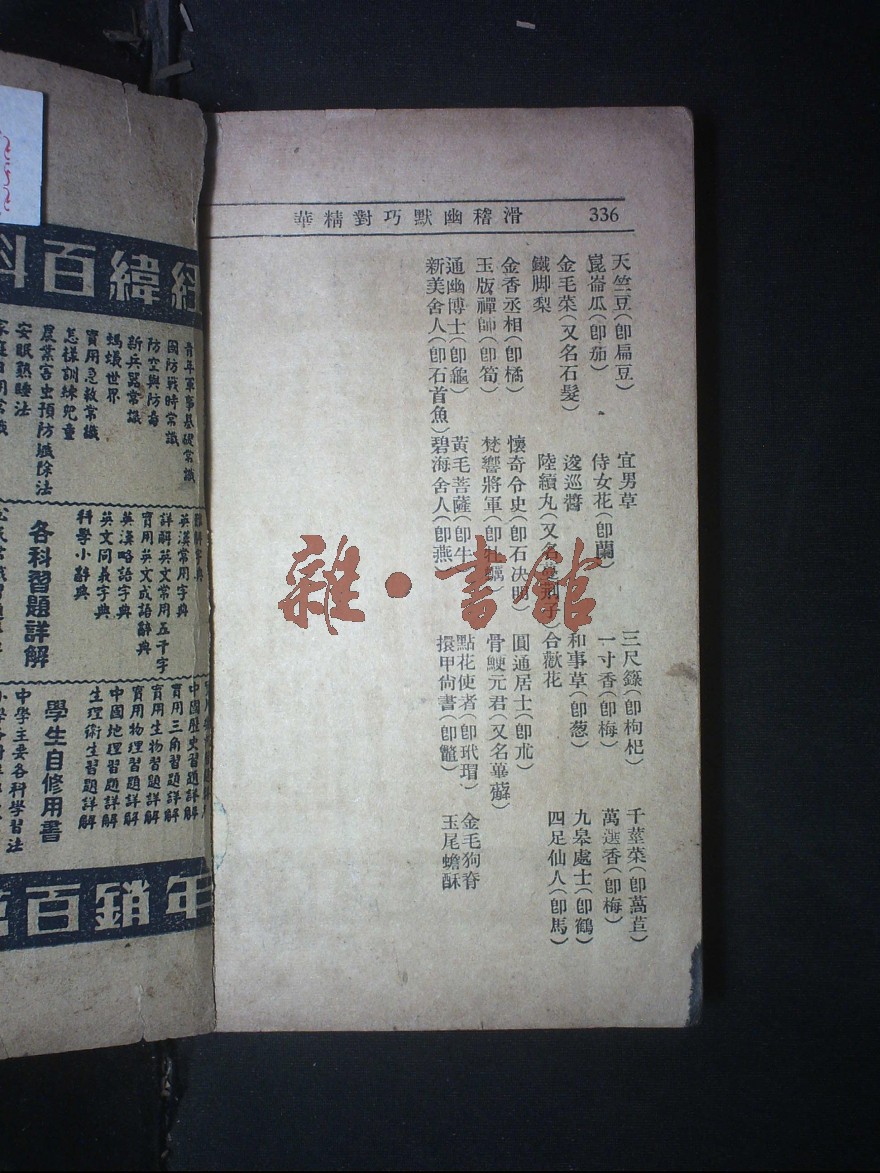 336
滑稽幽默巧對精華
天竺豆(卽扁豆) 宜男草 三尺籙(卽枸杞) 千莖菜(卽萵苣)
崑崙瓜(卽茄) 侍女花(卽蘭) 一寸香(卽梅) 萬選香(卽梅)
金毛菜(又名石髮) 逡巡醬 和事草(卽葱) 九皋處士(卽鶴)
鐵脚梨 陸續丸(又名蔓荆子) 合歡花 四足仙人(卽馬)
金香丞相(卽橘) 懷奇令史(卽石决明) 圓通居士(卽朮)
玉版禪師(卽筍) 梵響將軍(卽牡蠣) 骨鯁元君(又名萆薢)
通幽博士(卽龜) 黃毛菩薩(卽牛) 點花使者(卽玳瑁) 金毛狗脊
新美舍人(卽石首魚) 碧海舍人(卽燕) 擐甲尙書(卽鼈) 玉尾蟾酥
雜·書館
經緯百科
青年軍事基礎常識
國防戰時常識
防空與防毒
新兵器常識
螞蟻世界
實用急救常識
怎樣訓練兒童
農業害虫預防驅除法
安眠熟睡法
家庭日用常識
英漢常用字典
詳解英文常用五千字
實用英文成語辭典
英漢略語字典
英文同義字典
科學小辭典
各科習題詳解
中國歷史習題詳解
實用三角習題詳解
實用生物習題詳解
實用物理習題詳解
中國地理習題詳解
生理衛生習題詳解
學生自修用書
中學主要各科學習法
年銷百